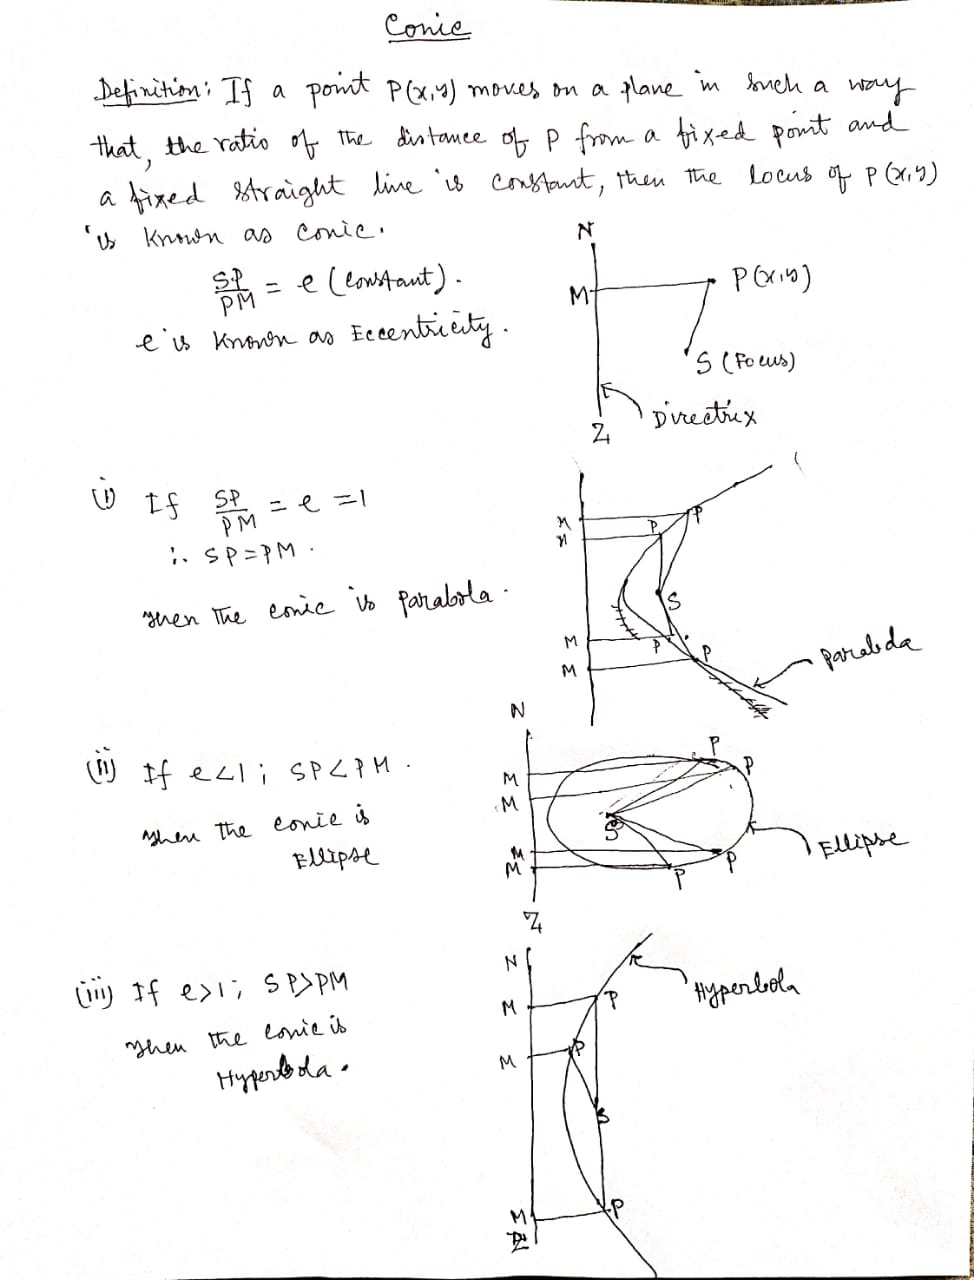 Conic
Definition: If a point P(x,y) moves on a plane in such a way
that, the ratio of the distance of P from a fixed point and
a fixed straight line is constant, then the locus of P(x,y)
is known as conic.
N
SP/PM = e (constant).
M
P(x,y)
e is known as Eccentricity.
S (Focus)
Directrix
Z
(i) If SP/PM = e = 1
∴ SP = PM.
Then the conic is parabola.
M P
M P
S
M P
M P
parabola
N
(ii) If e<1; SP<PM.
Then the conic is
Ellipse
M P
M P
S
M P
M P
Ellipse
Z
N
(iii) If e>1; SP>PM
Then the conic is
Hyperbola.
M P
Hyperbola
M P
S
M P
Z